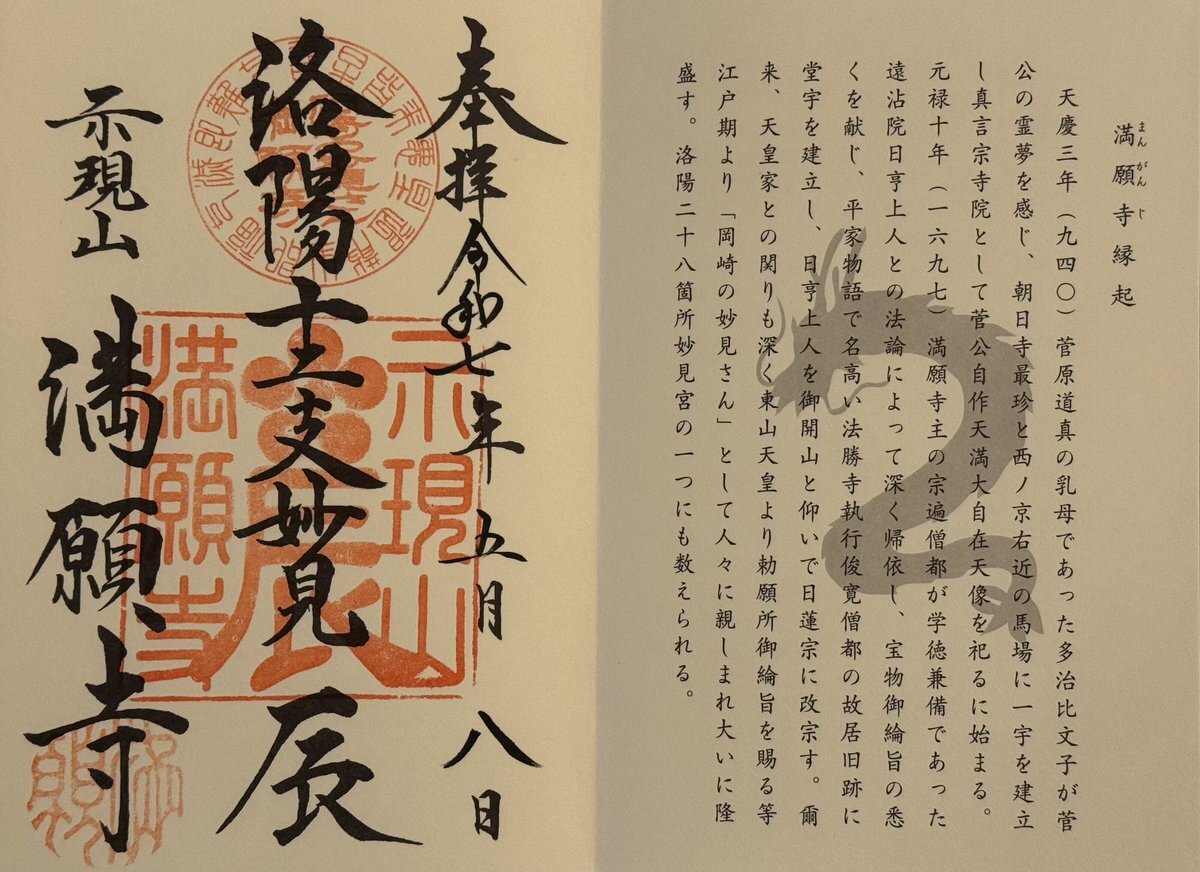 まんがんじ
満願寺縁起
天慶三年（九四〇）菅原道真の乳母であった多治比文子が菅
公の霊夢を感じ、朝日寺最珍と西ノ京右近の馬場に一宇を建立
し真言宗寺院として菅公自作天満大自在天像を祀るに始まる。
元禄十年（一六九七）満願寺主の宗遍僧都が学徳兼備であった
遠沾院日亨上人との法論によって深く帰依し、宝物御綸旨の悉
くを献じ、平家物語で名高い法勝寺執行俊寛僧都の故居旧跡に
堂宇を建立し、日亨上人を御開山と仰いで日蓮宗に改宗す。爾
来、天皇家との関りも深く東山天皇より勅願所御綸旨を賜る等
江戸期より「岡崎の妙見さん」として人々に親しまれ大いに隆
盛す。洛陽二十八箇所妙見宮の一つにも数えられる。
奉拝 令和七年 五月 八日
洛陽十二支妙見 辰
示現山 満願寺
示現山
辰
満願寺